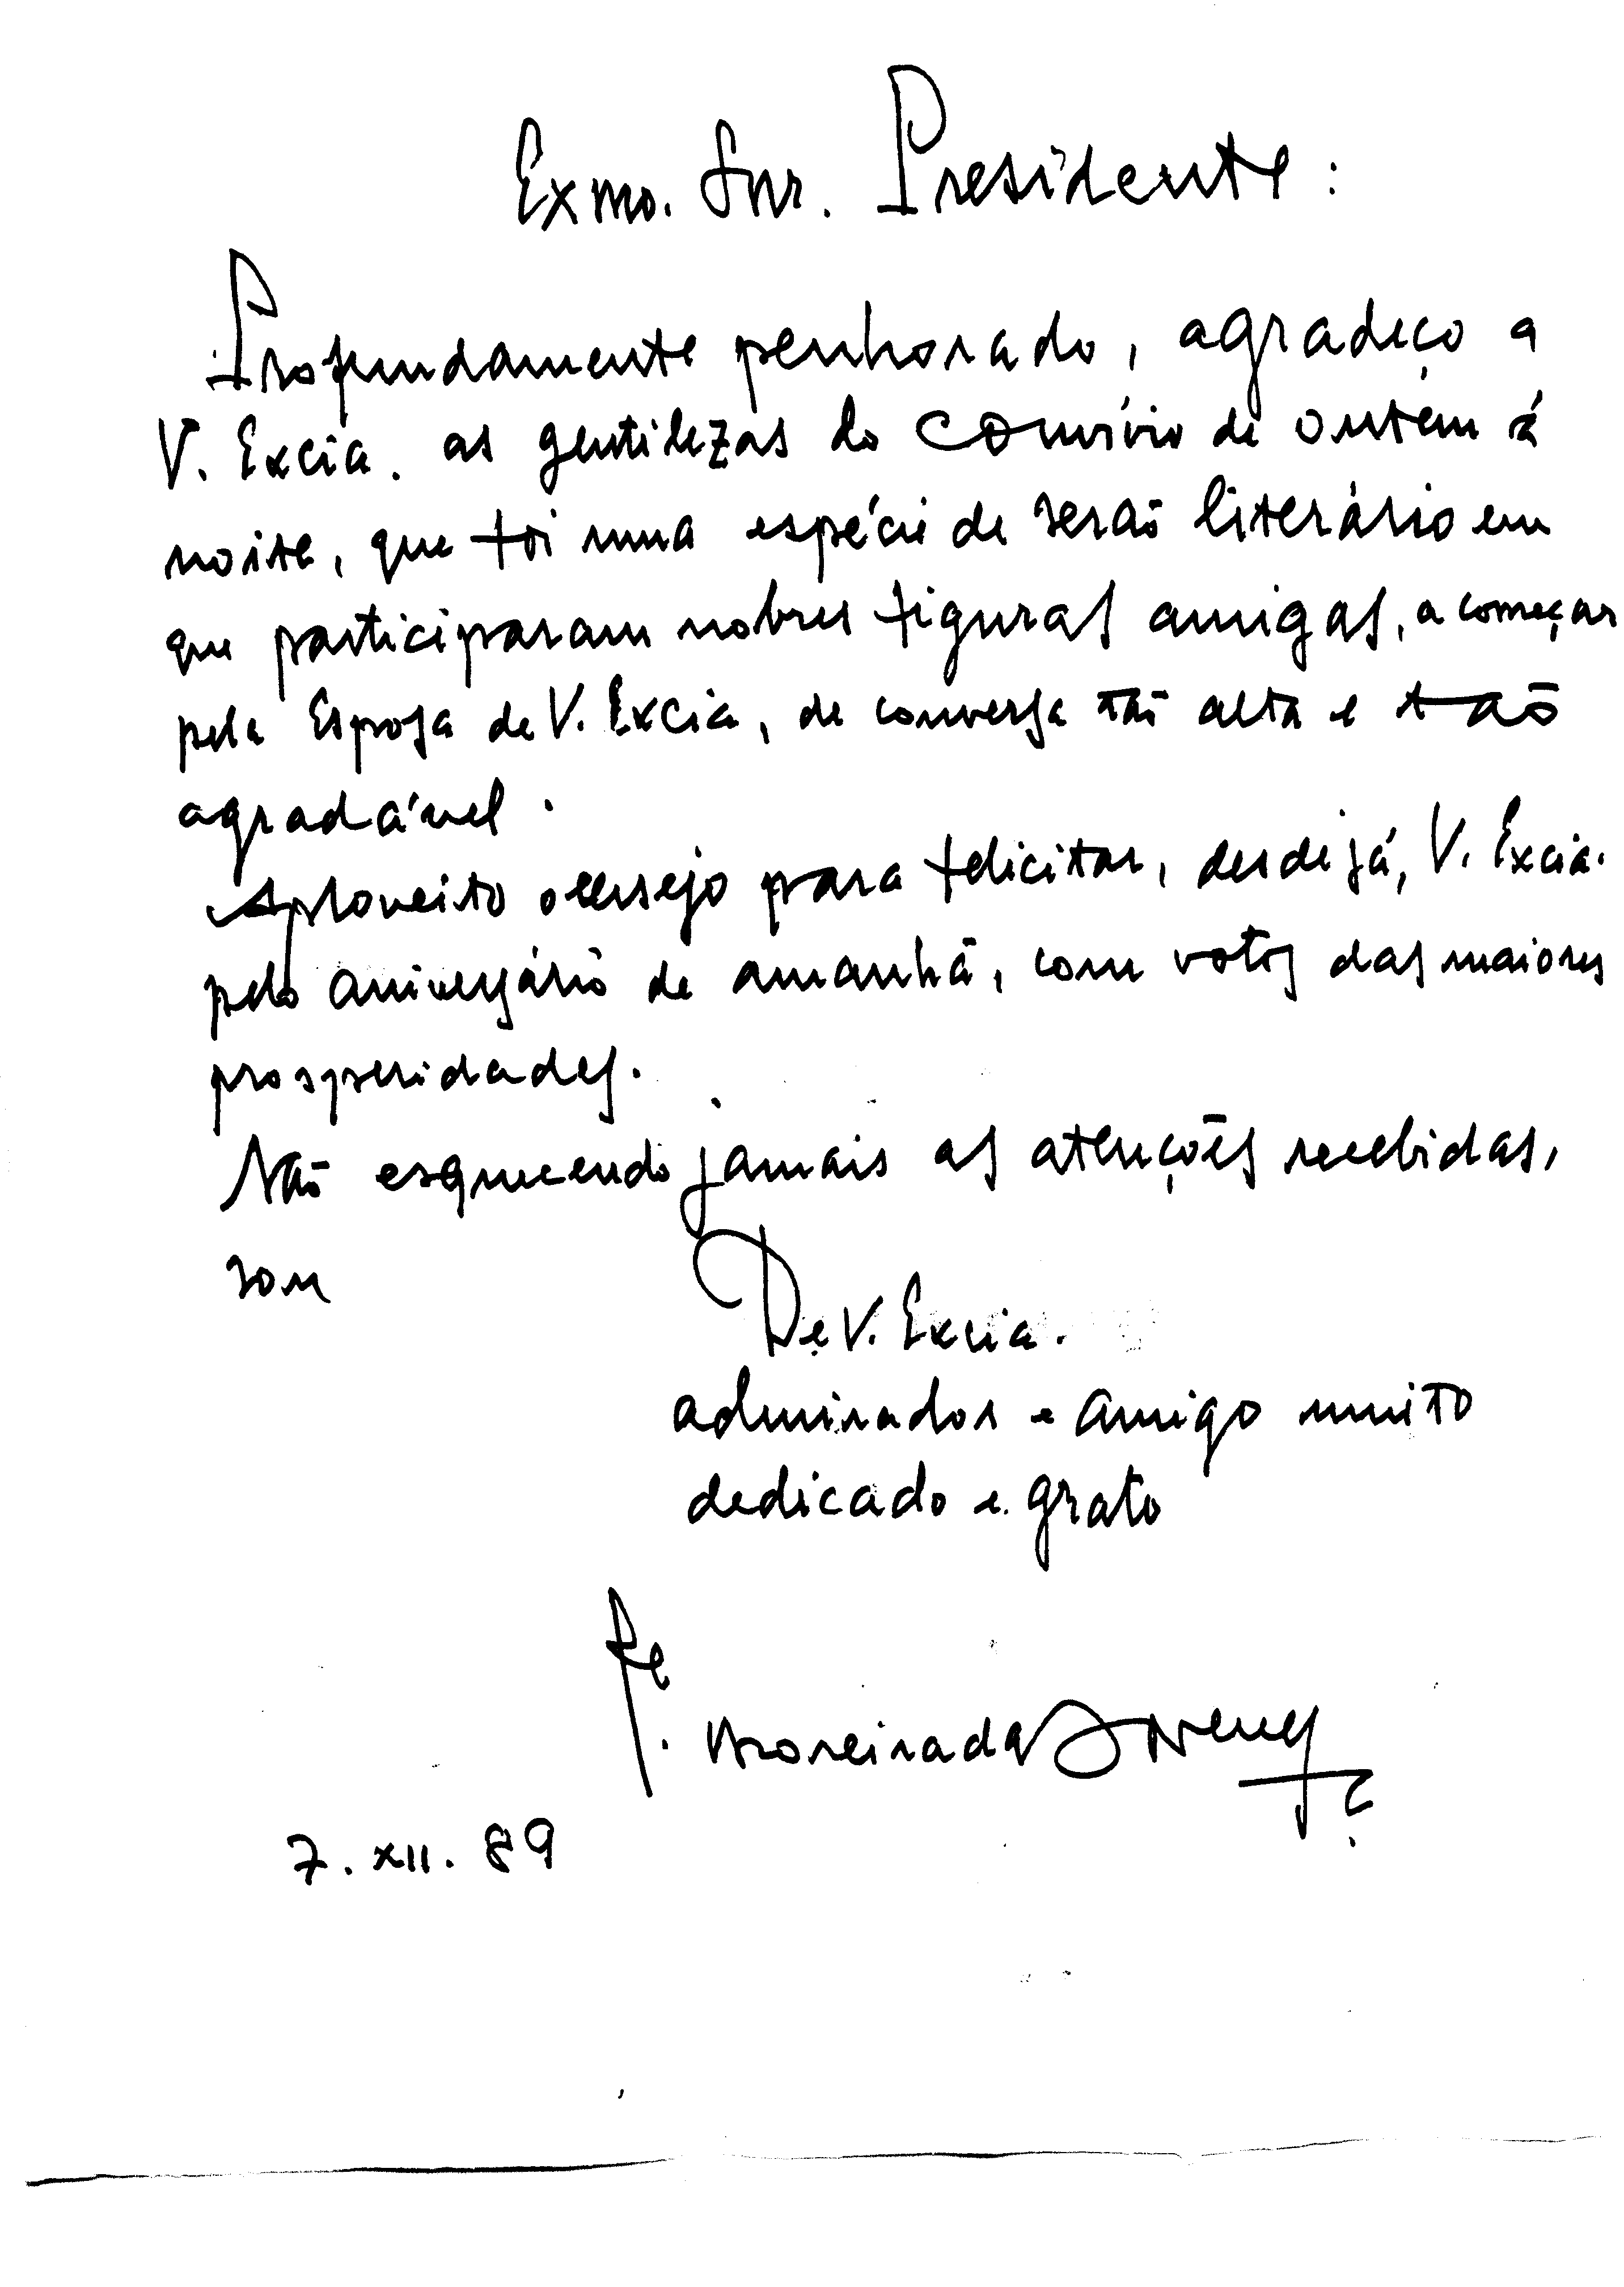 Exmo. Snr. Presidente:
Profundamente penhorado, agradeço a
V. Excia. as gentilezas do convívio de ontem à
noite, que foi uma espécie de serão literário em
que participaram nobres figuras amigas, a começar
pela Esposa de V. Excia, de conversa tão alta e tão
agradável.
Aproveito o ensejo para felicitar, desde já, V. Excia.
pelo aniversário de amanhã, com votos das maiores
prosperidades.
Não esquecendo jamais as atenções recebidas,
sou
De V. Excia.
admirador e amigo muito
dedicado e grato
Pe. Moreira das Neves
7. XII. 89